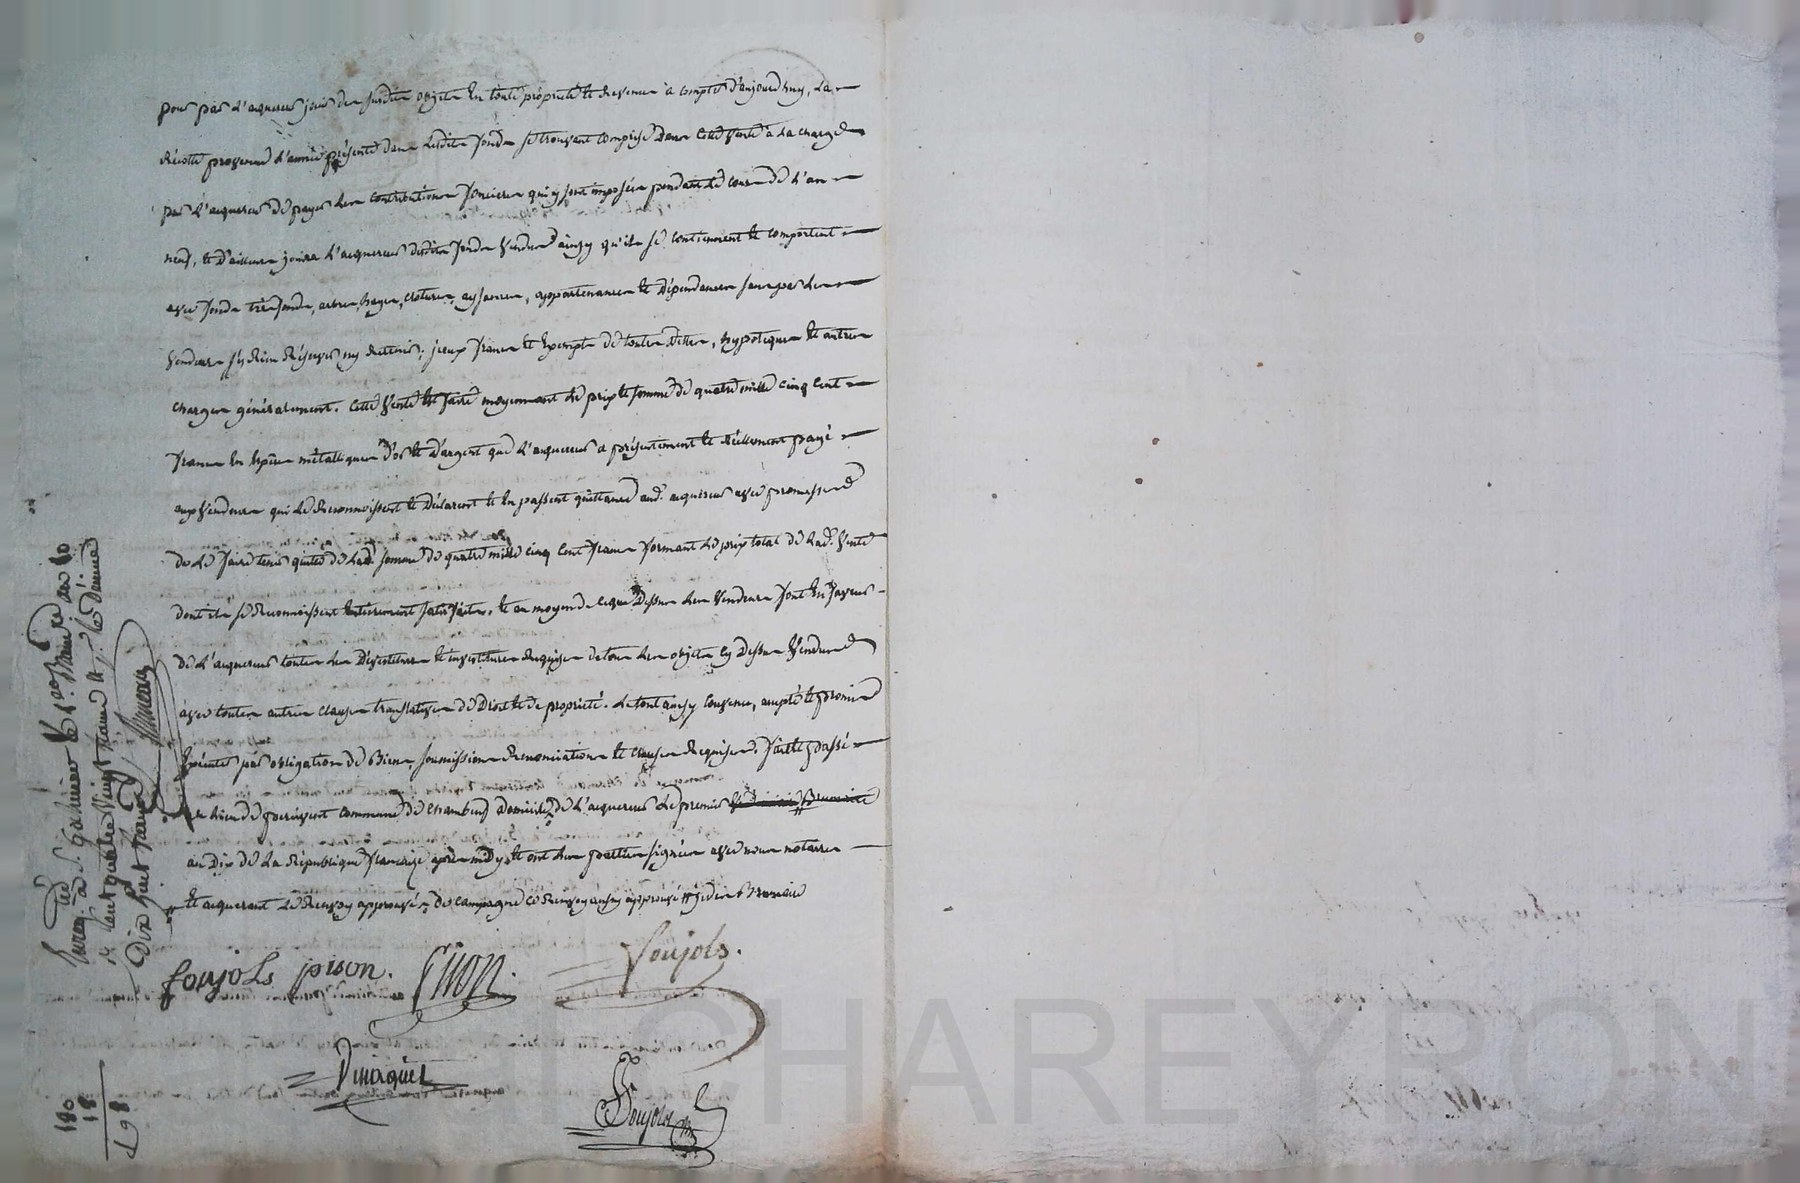 pour par l'acquereur jouir des susdits objets en toute propriété et revenus à compter d'aujourd'huy, la
récolte provenue l'année présente dans lesdits fonds se trouvant comprise dans cette vente à la charge
par l'acquereur de payer les contributions foncieres qui y sont imposées pendant le cours de l'an
neuf, et d'ailleurs jouira l'acquereur desdits fonds vendus ainsy qu'ils se contiennent et comportent
avec fonds tréfonds, arbres, hayes, clotures, aysances, appartenances et dépendances sans par les
vendeurs s'y rien réserver ny retenir; iceux francs et exempts de toutes dettes, hypoteques et autres
charges généralement. Cette vente est faite moyennant le prix et somme de quatre mille cinq cent
francs en espèces métalliques d'or et d'argent que l'acquereur a présentement et réellement payé
aux vendeurs qui le reconnoissent et déclarent et en passent quittance aud. acquereur avec promesse
de le faire tenir quitte de lad. somme de quatre mille cinq cent francs formant le prix total de lad. vente
dont ils se reconnoissent entierement satisfaits, et au moyen de ce que dessus les vendeurs font en faveur
de l'acquereur toutes les dévestitures et investitures requises de tous les objets cy dessus vendus
avec toutes autres clauses translatives de droit et de propriété. Le tout ainsy convenu, accepté et promis
par obligation de biens, soumissions renonciations et clauses requises. fait et passé
au lieu de commune de Chambon domicile de l'acquereur le premier brumaire
an dix de la République française après midy, et ont les parties signées avec nous notaires
et acquerant le renvoy approuvé de campagne ce renvoy aussy approuvé brumaire
foujols pison. Foujols.
Foujols
Enreg. à le Brumaire an 10
cent quatre vingt francs et le décime
Dix huit francs
180
18
198
CHAREYRON